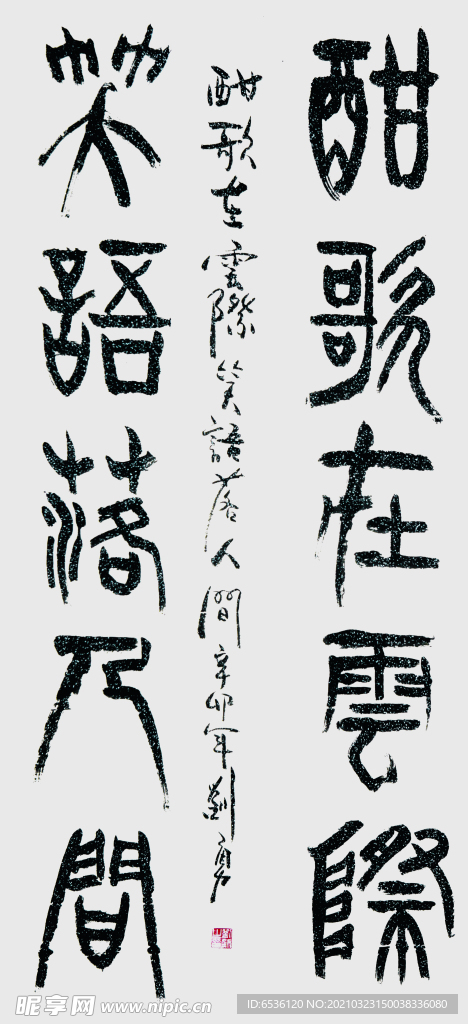 酣歌在雲際
酣歌在雲際笑語落人間辛卯年劉勇
笑語落人間
昵享网 www.nipic.cn
ID:6536120 NO:20210323150038336080